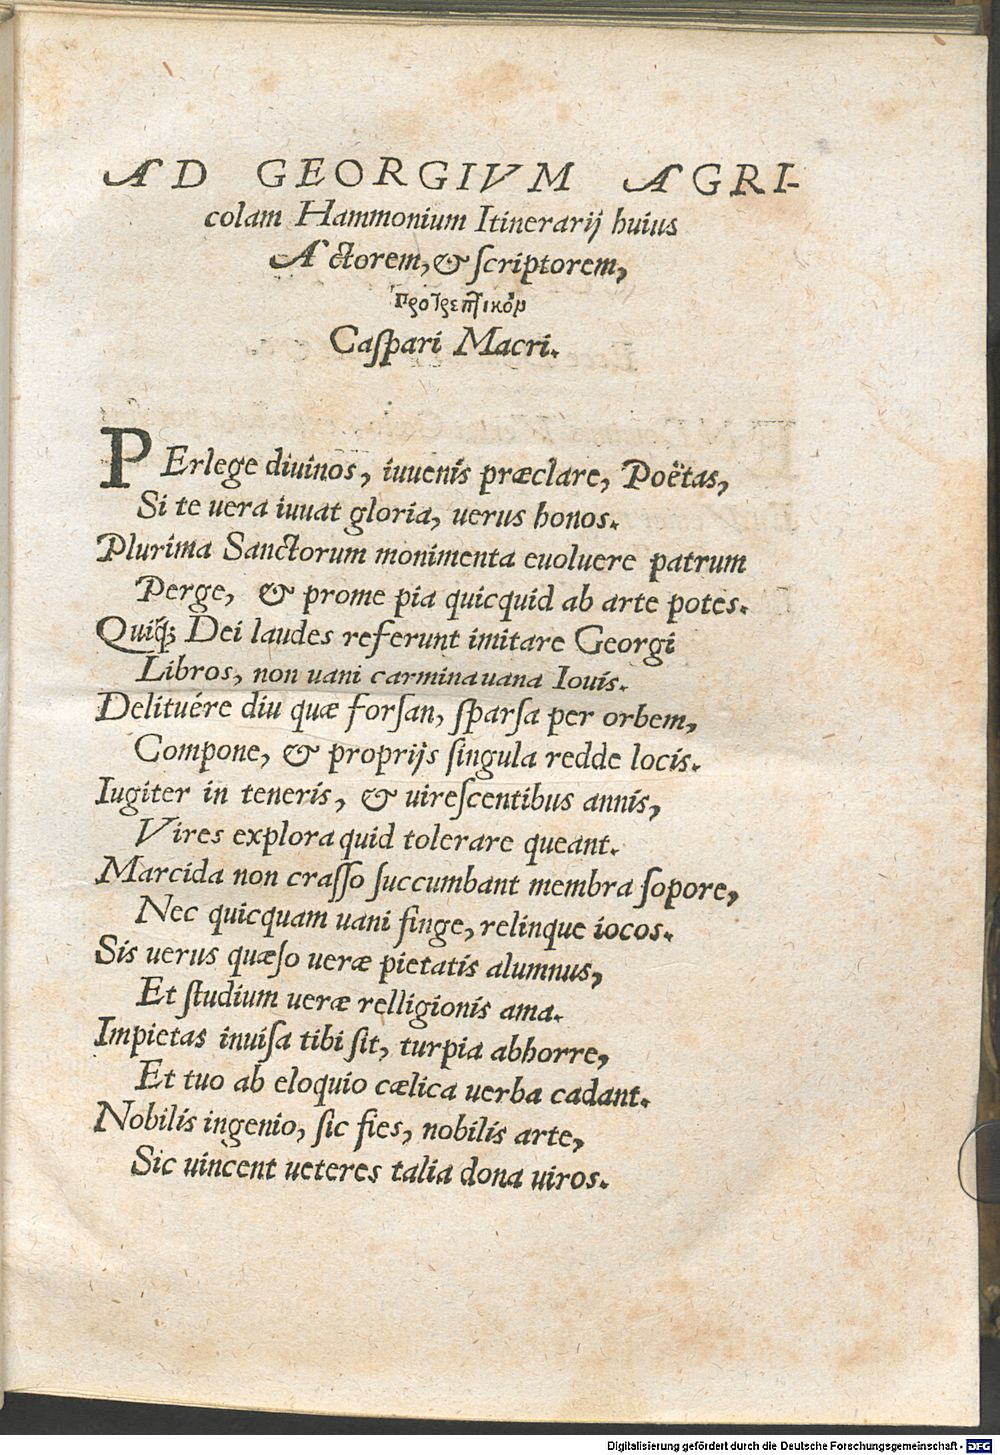 AD GEORGIVM AGRI-
colam Hammonium Itinerarij huius
Actorem, & ſcriptorem,
Προτρεπτικὸν
Caſpari Macri.
PErlege diuinos, iuuenis præclare, Poëtas,
Si te uera iuuat gloria, uerus honos.
Plurima Sanctorum monimenta euoluere patrum
Perge, & prome pia quicquid ab arte potes.
Quiq́ꝫ Dei laudes referunt imitare Georgi
Libros, non uani carmina uana Iouis.
Delituére diu quæ forſan, ſparſa per orbem,
Compone, & proprijs ſingula redde locis.
Iugiter in teneris, & uireſcentibus annis,
Vires explora quid tolerare queant.
Marcida non craſſo ſuccumbant membra ſopore,
Nec quicquam uani finge, relinque iocos.
Sis uerus quæſo ueræ pietatis alumnus,
Et ſtudium ueræ relligionis ama.
Impietas inuiſa tibi ſit, turpia abhorre,
Et tuo ab eloquio cælica uerba cadant.
Nobilis ingenio, ſic fies, nobilis arte,
Sic uincent ueteres talia dona uiros.
Digitalisierung gefördert durch die Deutsche Forschungsgemeinschaft - DFG